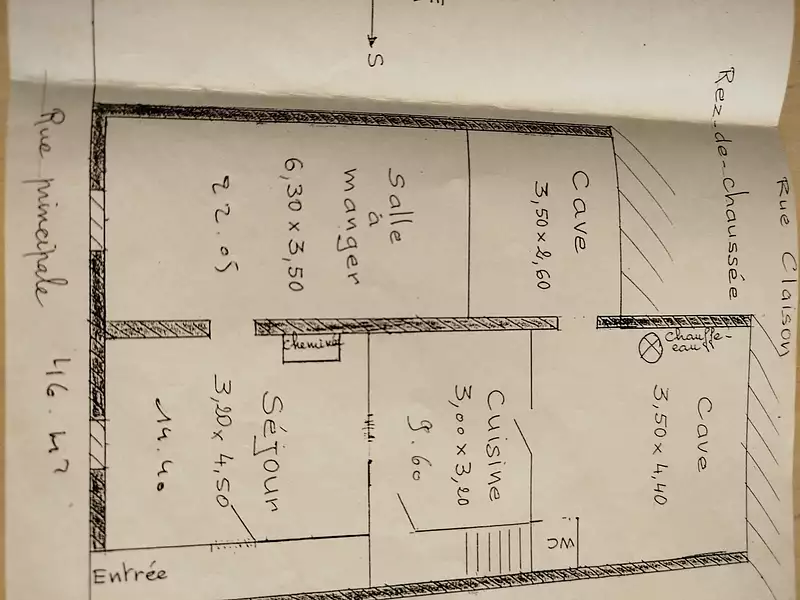 Rue Claison
Rez-de-chaussée
Cave
3,50 x 2,60
Salle
à
manger
6,30 x 3,50
22.05
Chauffe-
eau
Cave
3,50 x 4,40
WC
Cuisine
3,00 x 3,20
9.60
Cheminée
Séjour
3,20 x 4,50
14.40
Entrée
Rue principale 46.42
S